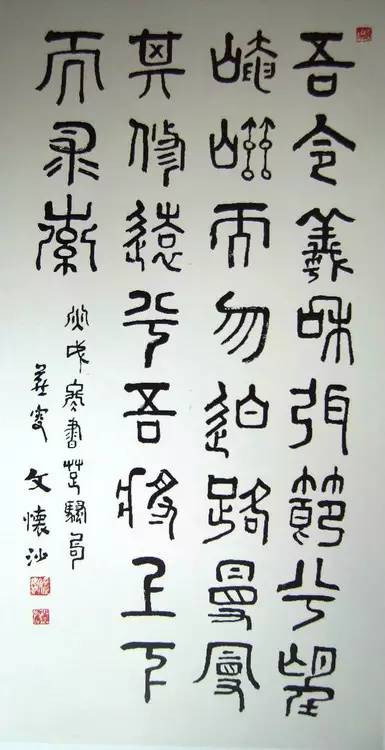 吾令羲和弭節兮望
崦嵫而勿迫路曼曼
其修遠兮吾將上下
而求索
戌寒書騷句
燕叟 文懷沙